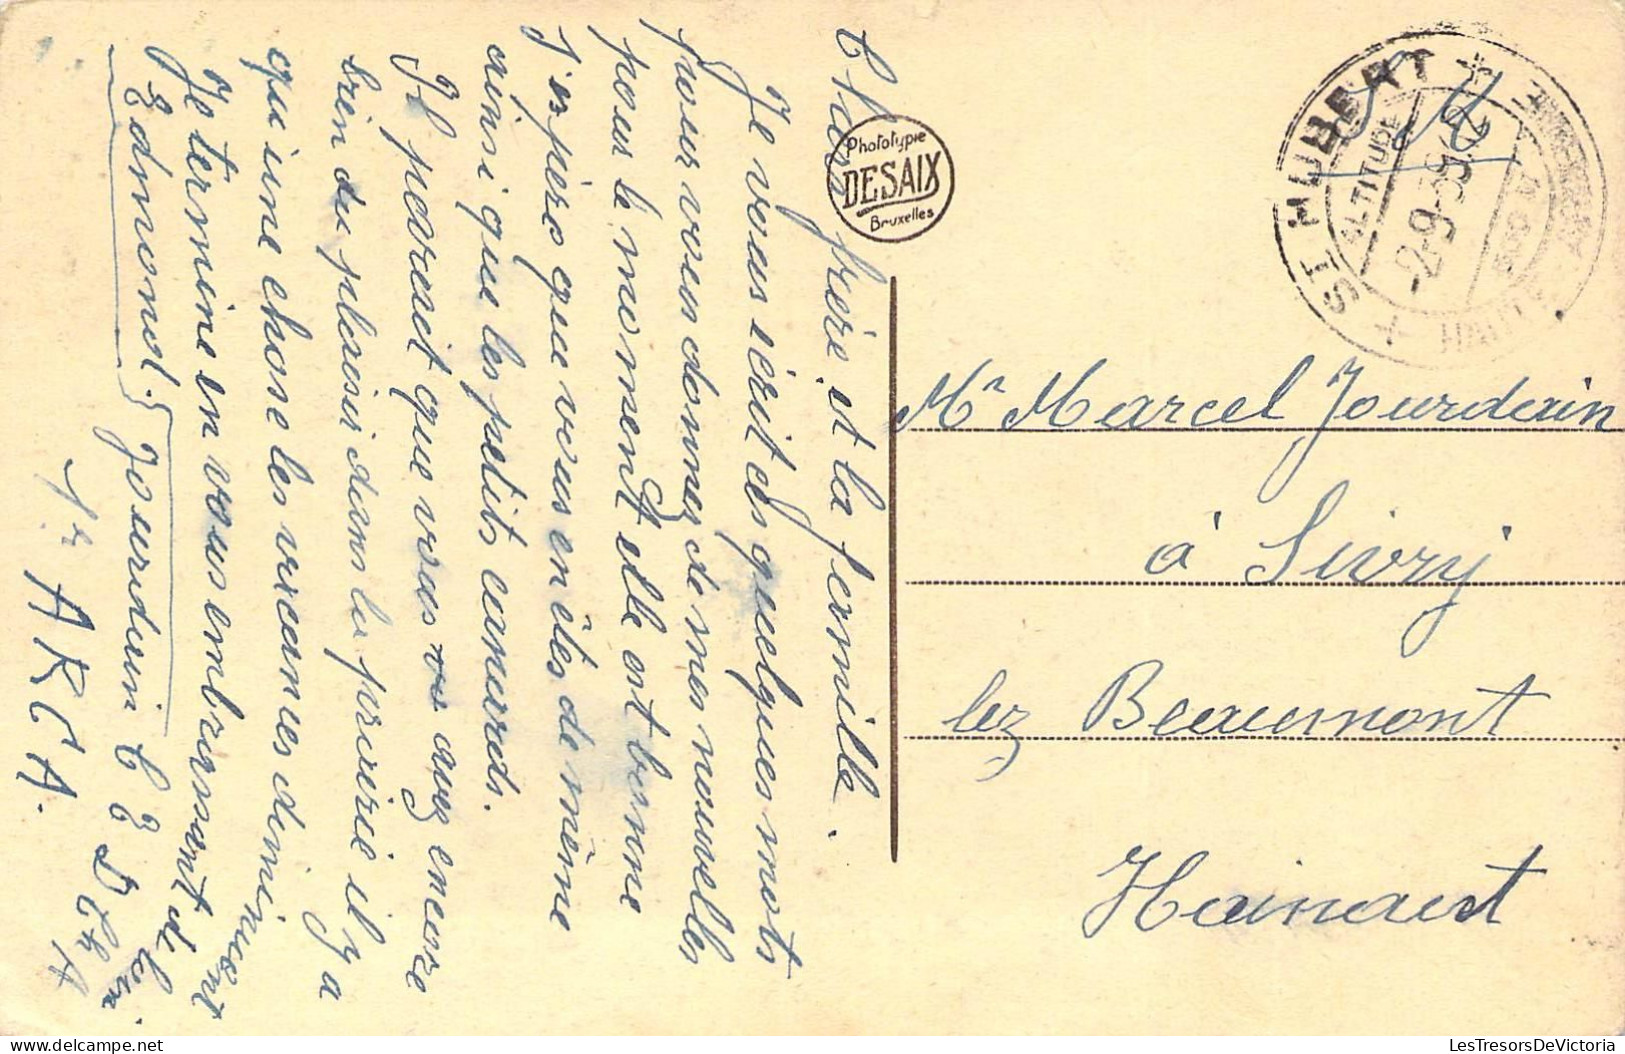 Cher frère et la famille.
Je vous écrit ces quelques mots
pour vous donnez de mes nouvelles
pour le moment elle est bonne
J'espère que vous en êtes de même
ainsi que les petits canards.
Il parait que vous avez encore
bien du plaisir dans la prairie il y a
qu'une chose les vacances diminuent
Je termine en vous embrassant de loin
Edmond.
Jourdain C E D Ch A
1r A K C A.
Phototypie
DESAIX
Bruxelles
S M
ST HUBERT
ALTITUDE
-2-9-39
HAUTE
Mr Marcel Jourdain
à Sivry
lez Beaumont
Hainaut
LesTresorsDeVictoria
delcampe.net
LesTresorsDeVictoria